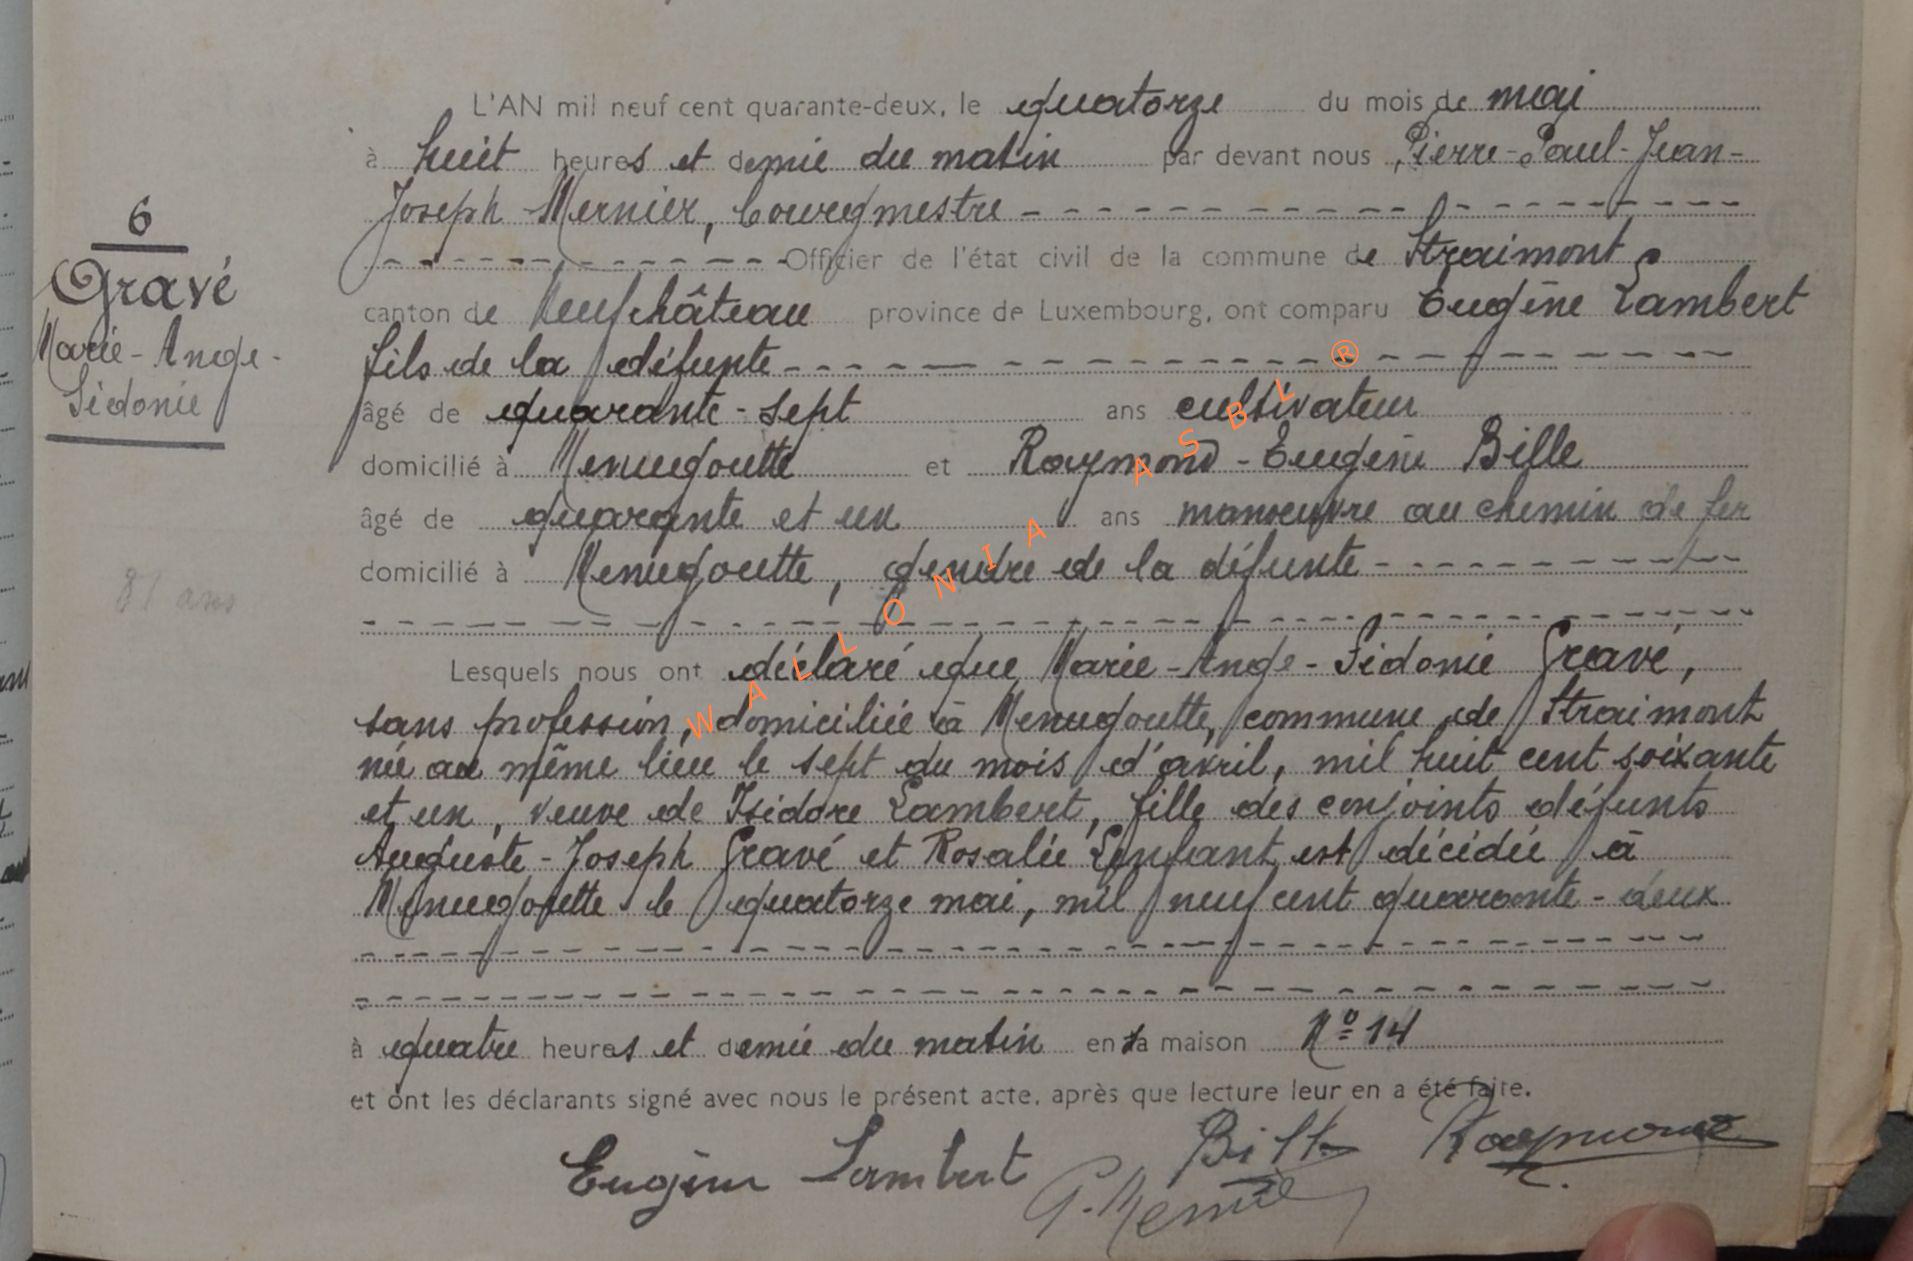 L'AN mil neuf cent quarante-deux, le quatorze du mois de mai
à huit heures et demie du matin par devant nous Pierre-Paul-Jean-
Joseph Mernier, bourgmestre
Officier de l'état civil de la commune de Straimont
canton de Neufchâteau province de Luxembourg, ont comparu Eugène Lambert
fils de la défunte
âgé de quarante-sept ans cultivateur
domicilié à Menugoutte et Raymond-Eugène Bille
âgé de quarante et un ans manoeuvre au chemin de fer
domicilié à Menugoutte, gendre de la défunte
Lesquels nous ont déclaré que Marie-Ange-Sidonie Gravé,
sans profession, domiciliée à Menugoutte, commune de Straimont
née au même lieu le sept du mois d'avril, mil huit cent soixante
et un, veuve de Isidore Lambert, fille des conjoints défunts
Auguste-Joseph Gravé et Rosalie Lenfant est décédée à
Menugoutte le quatorze mai, mil neuf cent quarante-deux
à quatre heures et demie du matin en sa maison N° 14
et ont les déclarants signé avec nous le présent acte, après que lecture leur en a été faite.
Eugène Lambert Bille Raymond
P. Mernier
6
Gravé
Marie-Ange-
Sidonie
81 ans
WALLONIA ASBL ®